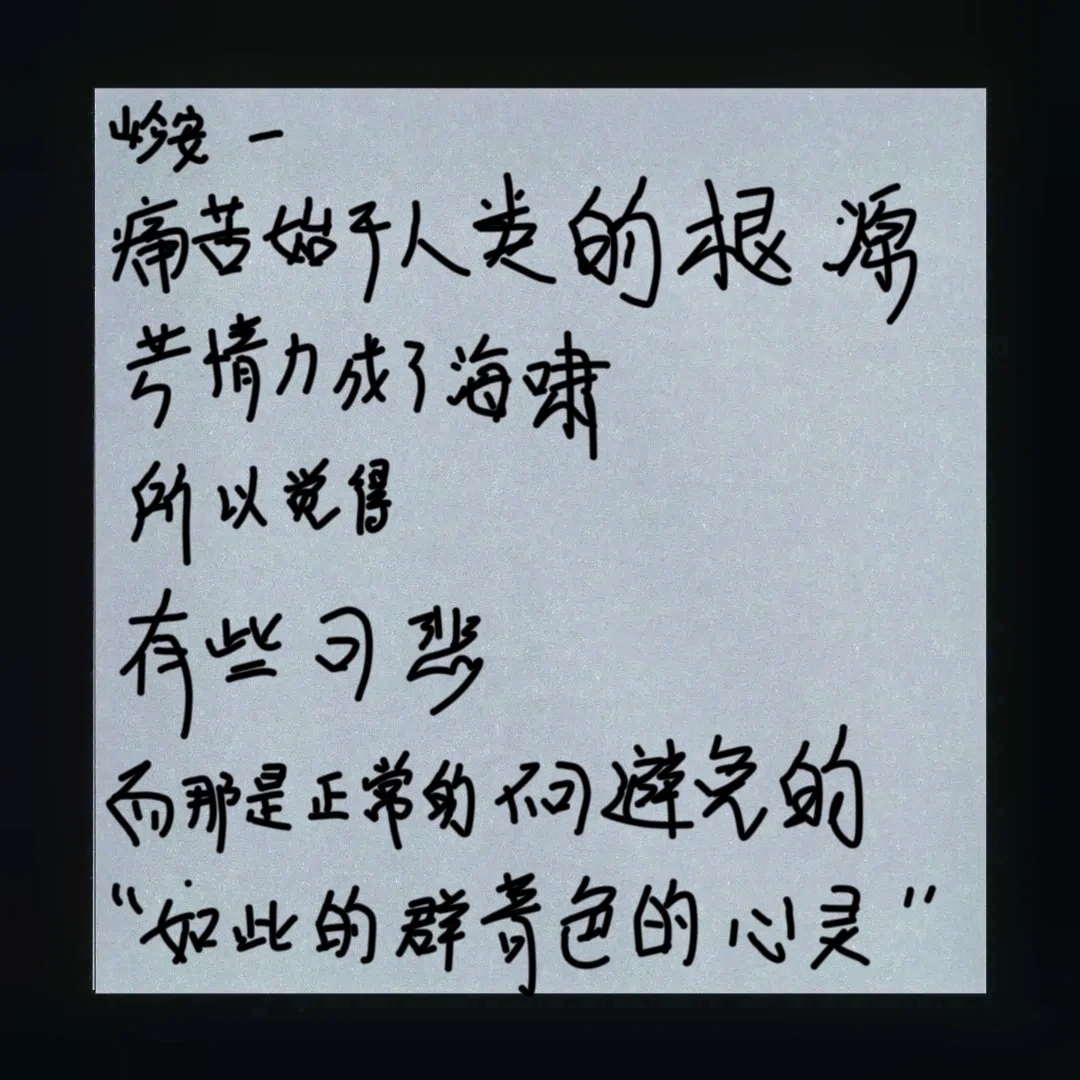 岭安 一
痛苦始于人类的根源
苦情力成了海啸
所以觉得
有些可悲
而那是正常的不可避免的
“如此的群青色的心灵”